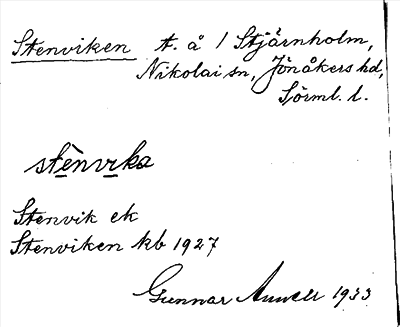 Stenviken t. å 1 Stjärnholm,
Nikolai sn, Jönåkers hd,
Sörml. l.
stènvika
Stenvik ek
Stenviken kb 1927
Gunnar 1933